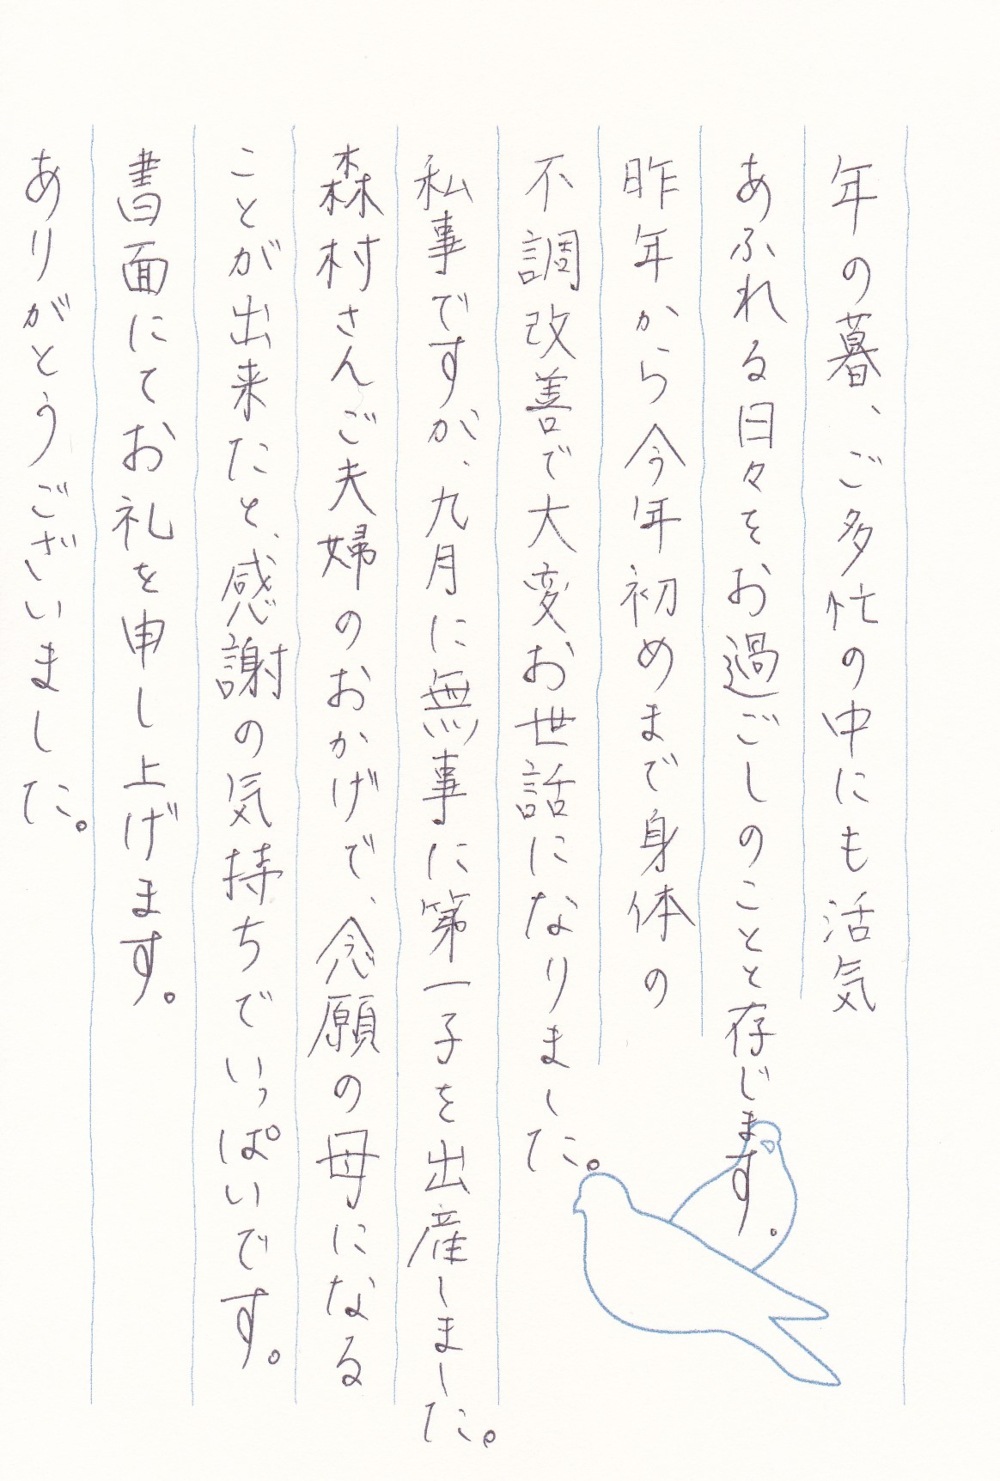 年の暮、ご多忙の中にも活気
あふれる日々をお過ごしのことと存じます。
昨年から今年初めまで身体の
不調改善で大変お世話になりました。
私事ですが、九月に無事に第一子を出産しました。
森村さんご夫婦のおかげで、念願の母になる
ことが出来たと、感謝の気持ちでいっぱいです。
書面にてお礼を申し上げます。
ありがとうございました。